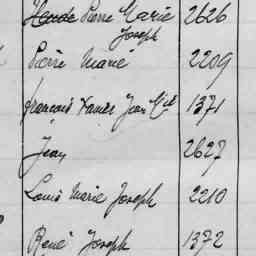 Pierre Marie 2626
Joseph
Pierre Marie 2209
françois Xavier Jean 1371
Jean 2627
Louis Marie Joseph 2210
René Joseph 1372